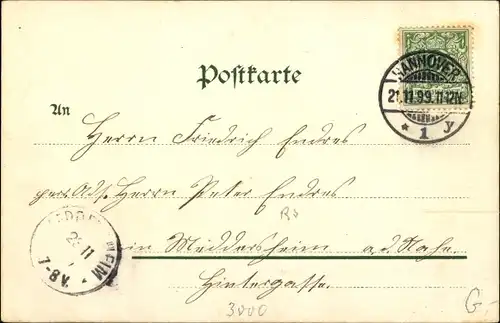 Postkarte
HANNOVER
21.11.99.11-12N.
* 1 y
An
Herrn Friedrich Endres
per Adr. Herrn Peter Endres
in Meddersheim a.d. Nahe.
Hintergasse.
HEIM
7-8V.
3000
G.